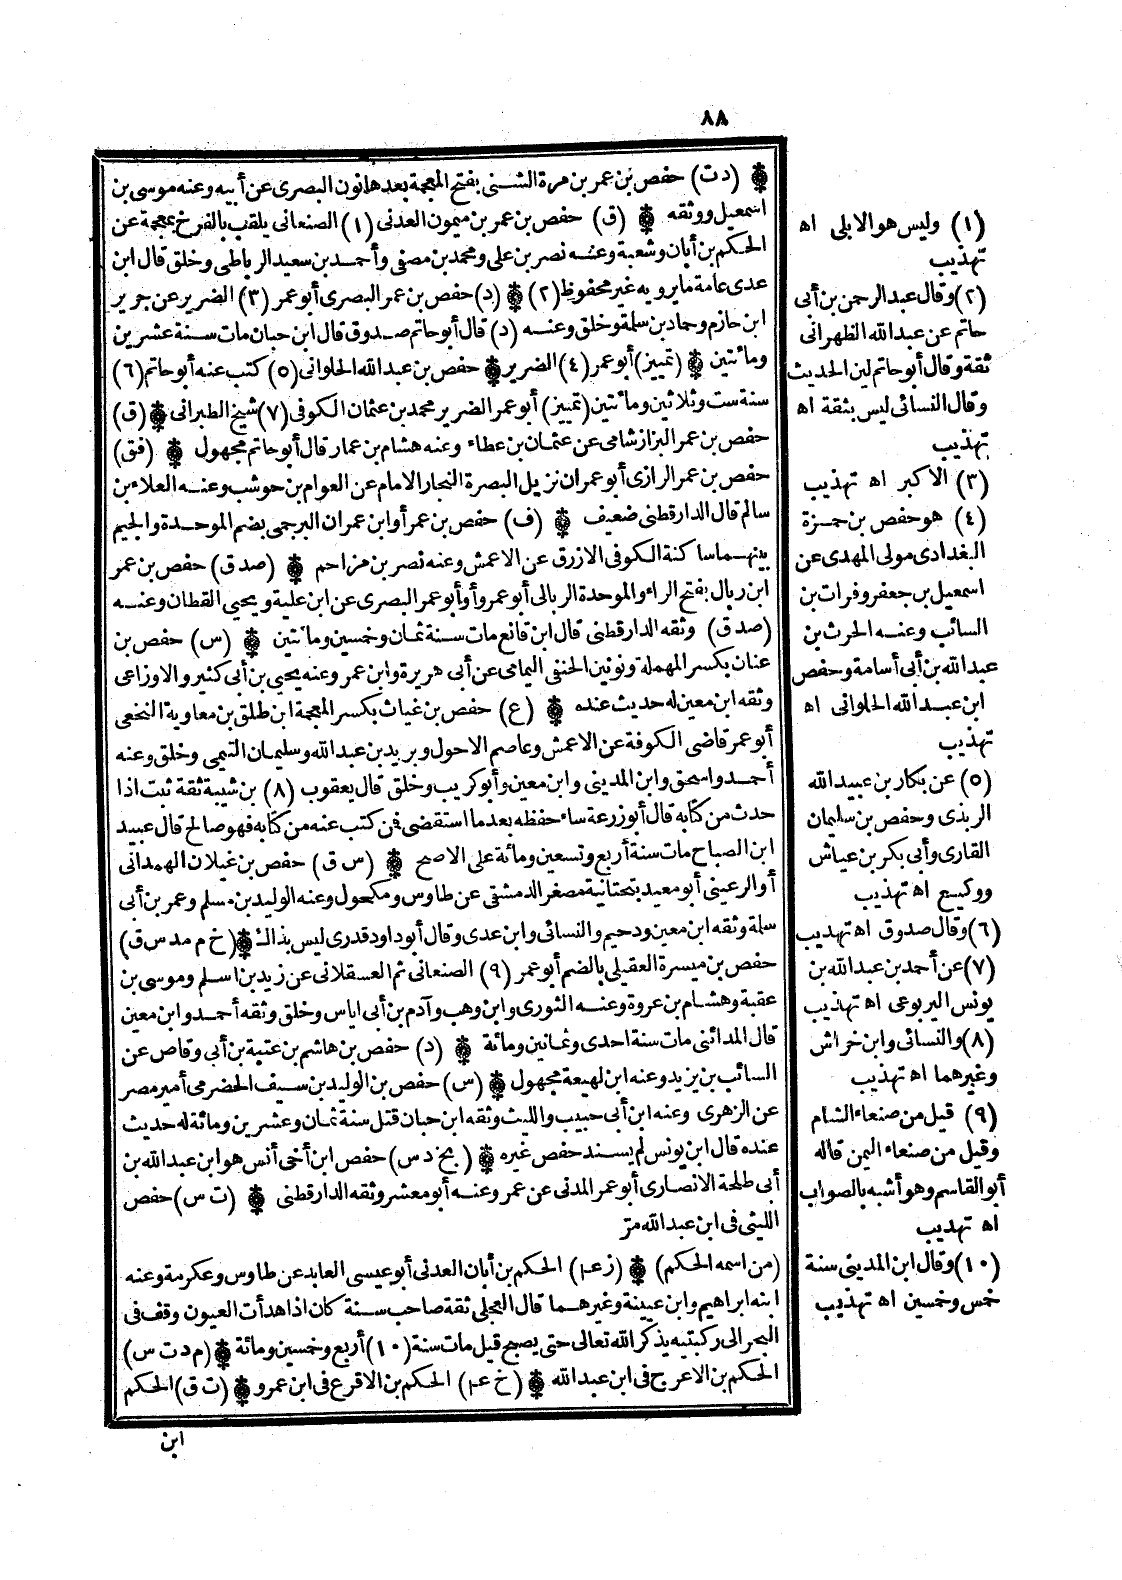 ٨٨
(دت) حفص بن عمر بن مرة الشنى بفتح المعجمة بعدها نون البصرى عن أبيه وعنه موسى بن
اسمعيل ووثقه (ق) حفص بن عمر بن ميمون العدنى (١) الصنعانى يلقب بالفرخ بمعجمة عن
الحكم بن أبان وشعبة وعنه نصر بن على ومحمد بن مصفى وأحمد بن سعيد الرباطى وخلق قال ابن
عدى عامة ما يرويه غير محفوظ (٢) (د) حفص بن عمر البصرى أبو عمر (٣) الضرير عن جرير
ابن حازم وحماد بن سلمة وخلق وعنه (د) قال أبو حاتم صدوق قال ابن حبان مات سنة عشرين
ومائتين (تمييز) أبو عمر (٤) الضرير حفص بن عبدالله الحلوانى (٥) كتب عنه أبو حاتم (٦)
سنة ست وثلاثين ومائتين (تمييز) أبو عمر الضرير محمد بن عثمان الكوفى (٧) شيخ الطبرانى (ق)
حفص بن عمر البزاز شامى عن عثمان بن عطاء وعنه هشام بن عمار قال أبو حاتم مجهول (فق)
حفص بن عمر الرازى أبو عمران نزيل البصرة النجار الامام عن العوام بن حوشب وعنه العلاء بن
سالم قال الدارقطنى ضعيف (ف) حفص بن عمر أو ابن عمران البرجمى بضم الموحدة والجيم
بينهما ساكنة الكوفى الازرق عن الاعمش وعنه نصر بن مزاحم (صد ق) حفص بن عمر
ابن ربال بفتح الراء والموحدة الربالى أبو عمرو أو أبو عمر البصرى عن ابن علية ويحيى القطان وعنه
(صد ق) وثقه الدارقطنى قال ابن قانع مات سنة ثمان وخمسين ومائتين (س) حفص بن
عنان بكسر المهملة ونونين الحنفى اليمامى عن أبى هريرة وابن عمر وعنه يحيى بن أبى كثير والاوزاعى
وثقه ابن معين له حديث عنده (ع) حفص بن غياث بكسر المعجمة ابن طلق بن معاوية النخعى
أبو عمر قاضى الكوفة عن الاعمش وعاصم الاحول وبريد بن عبدالله وسليمان التيمى وخلق وعنه
أحمد واسحق وابن المدينى وابن معين وأبو كريب وخلق قال يعقوب (٨) بن شيبة ثقة ثبت اذا
حدث من كتابه قال أبو زرعة ساء حفظه بعدما استقضى فمن كتب عنه من كتابه فهو صالح قال عبيد
ابن الصباح مات سنة أربع وتسعين ومائة على الاصح (س ق) حفص بن غيلان الهمدانى
أو الرعينى أبو معيد بتحتانية مصغر الدمشقى عن طاوس ومكحول وعنه الوليد بن مسلم وعمر بن أبى
سلمة وثقه ابن معين ودحيم والنسائى وابن عدى وقال أبو داود قدرى ليس بذاك (خ م مد س ق)
حفص بن ميسرة العقيلى بالضم أبو عمر (٩) الصنعانى ثم العسقلانى عن زيد بن اسلم وموسى بن
عقبة وهشام بن عروة وعنه الثورى وابن وهب وآدم بن أبى اياس وخلق وثقه أحمد وابن معين
قال المدائنى مات سنة احدى وثمانين ومائة (د) حفص بن هاشم بن عتبة بن أبى وقاص عن
السائب بن يزيد وعنه ابن لهيعة مجهول (س) حفص بن الوليد بن سيف الحضرمى أمير مصر
عن الزهرى وعنه ابن أبى حبيب والليث وثقه ابن حبان قتل سنة ثمان وعشرين ومائة له حديث
عنده قال ابن يونس لم يسند حفص غيره (بخ د س) حفص ابن أخى أنس هو ابن عبدالله بن
أبى طلحة الانصارى أبو عمر المدنى عن عمر وعنه أبو معشر وثقه الدارقطنى (ت س) حفص
الليثى فى ابن عبدالله مر
(من اسمه الحكم) (ز عـ) الحكم بن أبان العدنى أبو عيسى العابد عن طاوس وعكرمة وعنه
ابنه ابراهيم وابن عيينة وغيرهما قال العجلى ثقة صاحب سنة كان اذا هدأت العيون وقف فى
البحر الى ركبتيه يذكر الله تعالى حتى يصبح قيل مات سنة (١٠) أربع وخمسين ومائة (م د ت س)
الحكم بن الاعرج فى ابن عبدالله (خ عـ) الحكم بن الاقرع فى ابن عمرو (ت ق) الحكم
ابن
(١) وليس هو الابلى اه
تهذيب
(٢) وقال عبد الرحمن بن أبى
حاتم عن عبدالله الظهرانى
ثقة وقال أبو حاتم لين الحديث
وقال النسائى ليس بثقة اه
تهذيب
(٣) الاكبر اه تهذيب
(٤) هو حفص بن حمزة
البغدادى مولى المهدى عن
اسمعيل بن جعفر وفرات بن
السائب وعنه الحرث بن
عبدالله بن أبى أسامة وحفص
ابن عبدالله الحلوانى اه
تهذيب
(٥) عن بكار بن عبيدالله
الربذى وحفص بن سليمان
القارى وأبى بكر بن عياش
ووكيع اه تهذيب
(٦) وقال صدوق اه تهذيب
(٧) عن أحمد بن عبدالله بن
يونس اليربوعى اه تهذيب
(٨) والنسائى وابن خراش
وغيرهما اه تهذيب
(٩) قيل من صنعاء الشام
وقيل من صنعاء اليمن قاله
أبو القاسم وهو أشبه بالصواب
اه تهذيب
(١٠) وقال ابن المدينى سنة
خمس وخمسين اه تهذيب